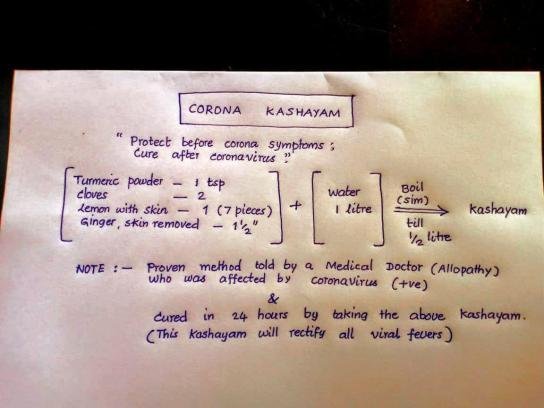 CORONA KASHAYAM
" Protect before corona symptoms ;
Cure after coronavirus "
Turmeric powder – 1 tsp
cloves – 2
Lemon with skin – 1 (7 pieces)
Ginger, skin removed – 1½"
+
Water
1 litre
Boil
(sim)
till
½ litre
kashayam
NOTE :– Proven method told by a Medical Doctor (Allopathy)
who was affected by coronavirus (+ve)
&
Cured in 24 hours by taking the above kashayam.
(This Kashayam will rectify all viral fevers)